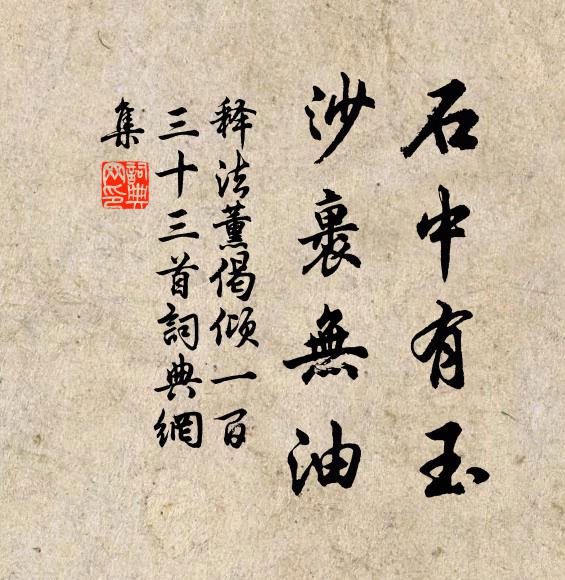 石中有玉
沙裹無油
释法薰偈倾一百
三十三首詞典網
集
詞典網印